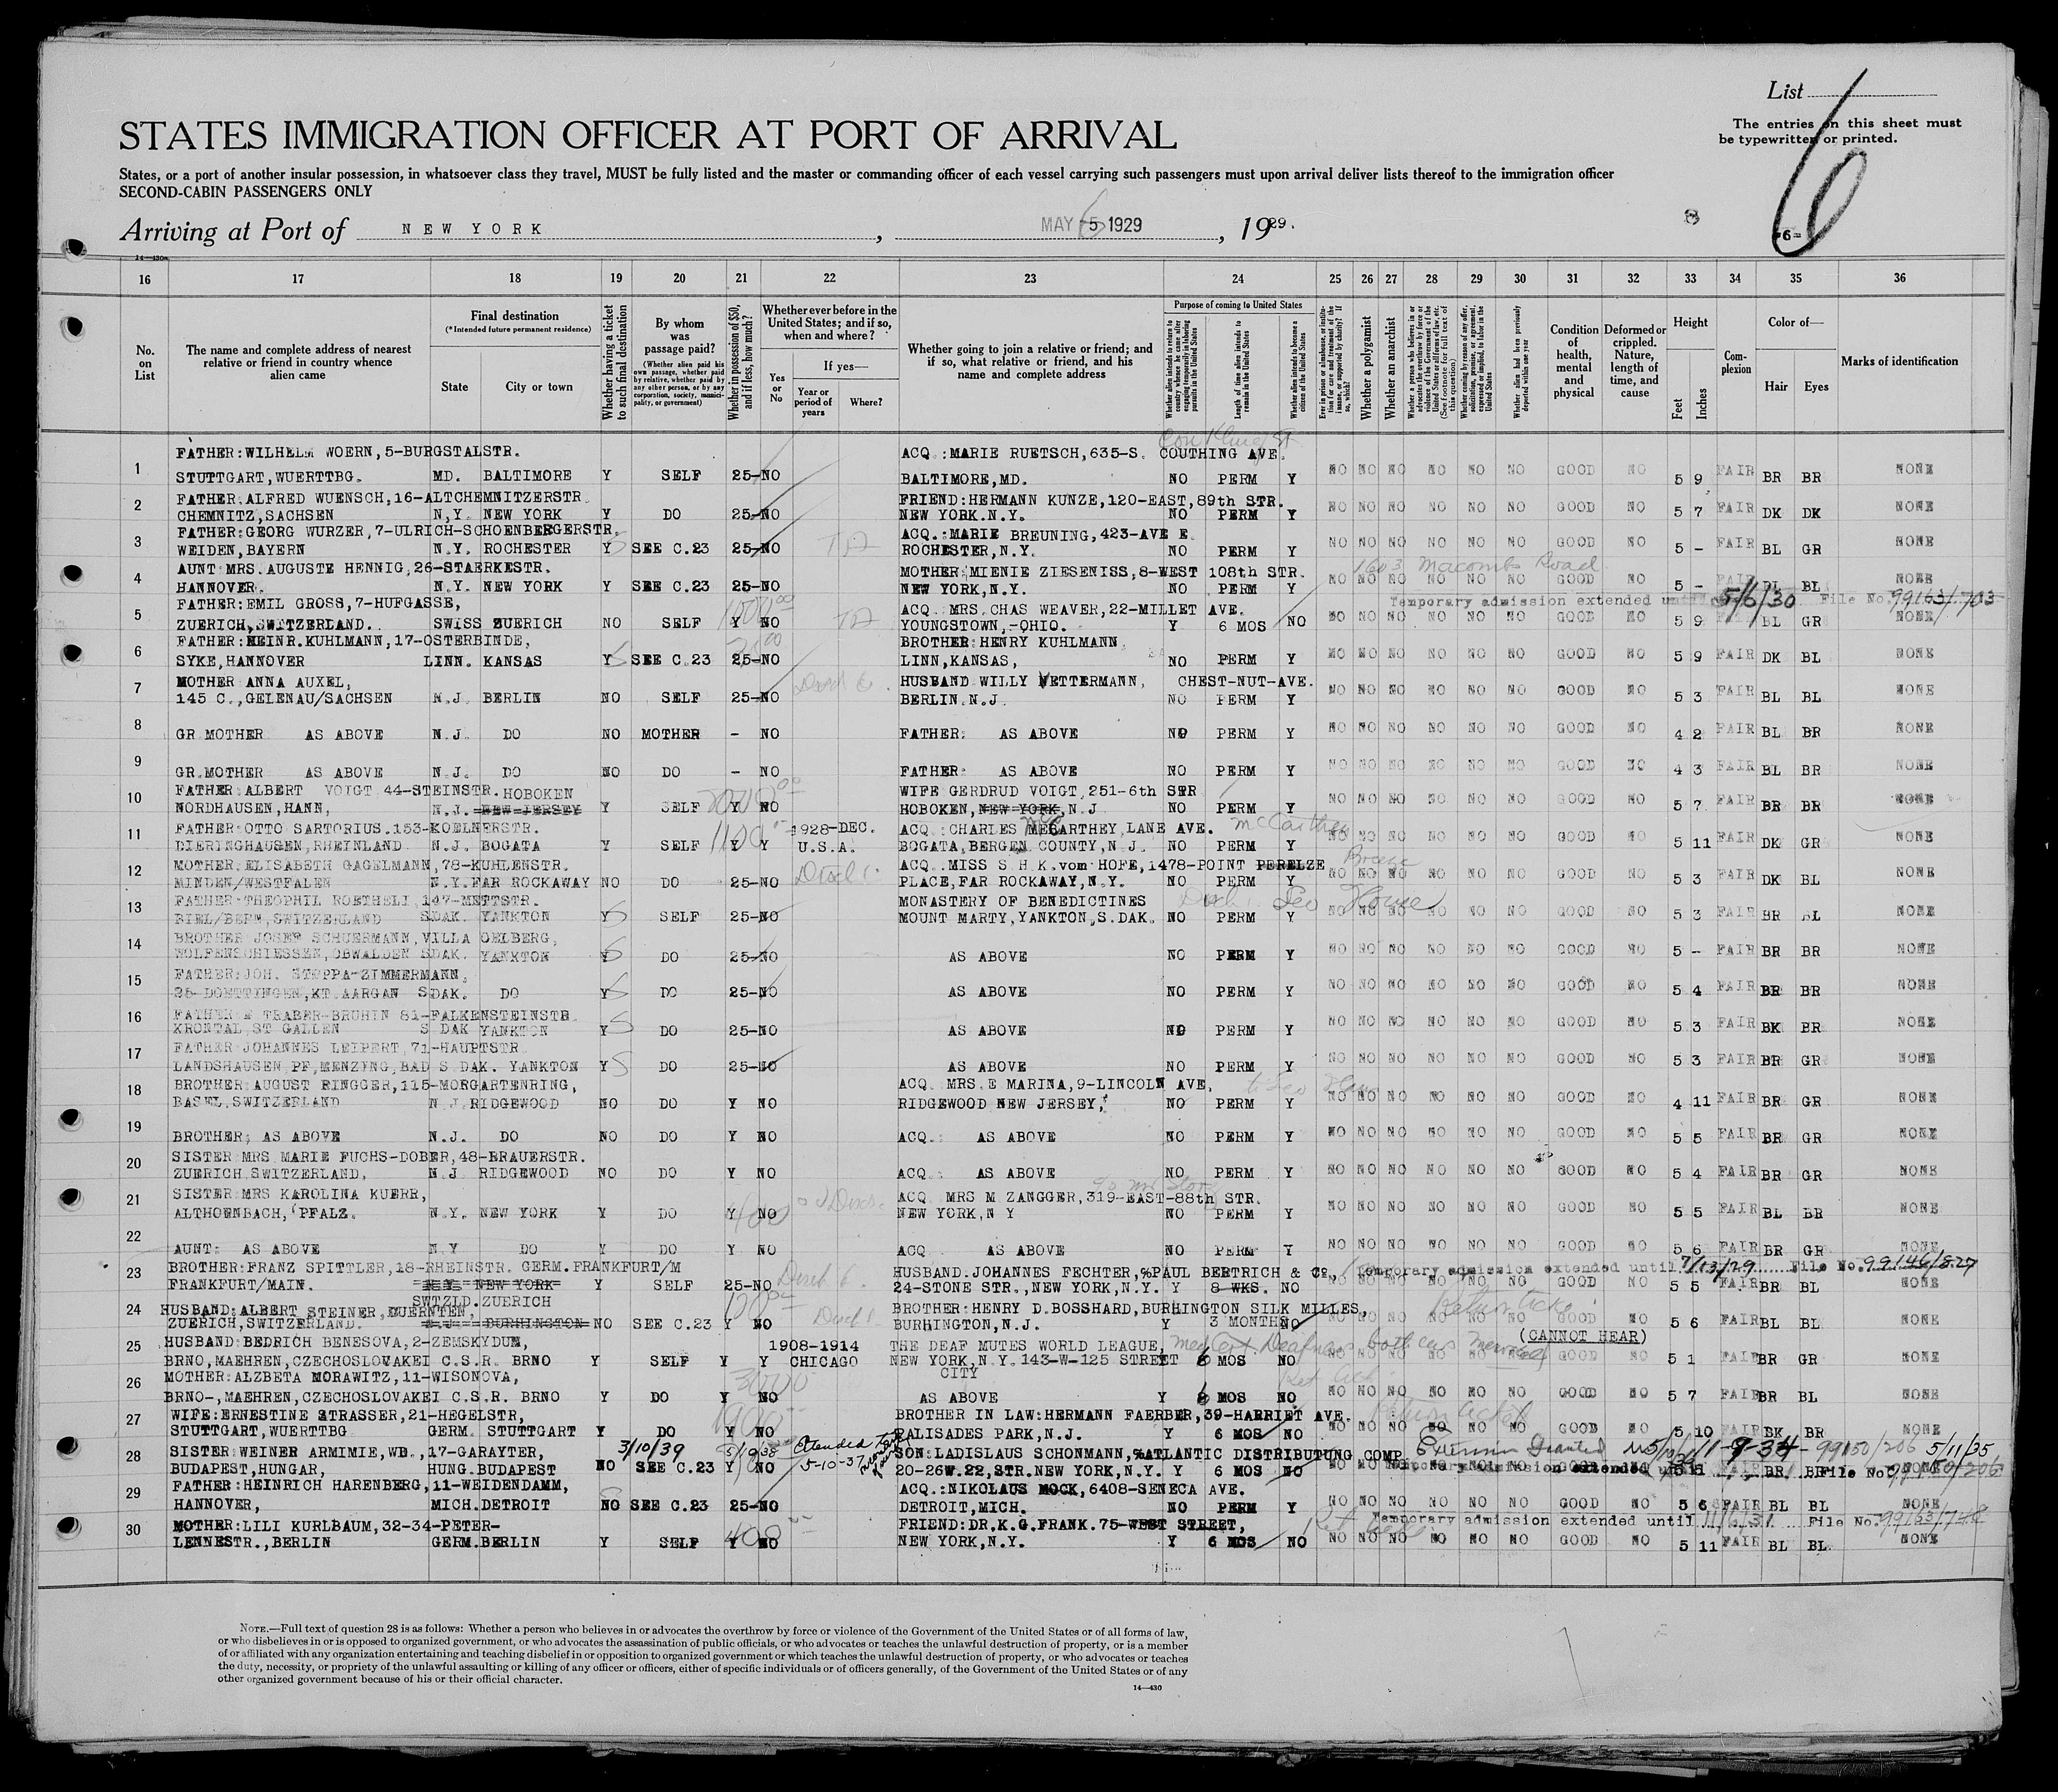 List
The entries on this sheet must
be typewritten or printed.
6
STATES IMMIGRATION OFFICER AT PORT OF ARRIVAL
States, or a port of another insular possession, in whatsoever class they travel, MUST be fully listed and the master or commanding officer of each vessel carrying such passengers must upon arrival deliver lists thereof to the immigration officer
SECOND-CABIN PASSENGERS ONLY
Arriving at Port of NEW YORK, MAY 5 1929, 1929.
-6-
14-430a
16 17 18 19 20 21 22 23 24 25 26 27 28 29 30 31 32 33 34 35 36
No. on List
The name and complete address of nearest relative or friend in country whence alien came
Final destination
(*Intended future permanent residence)
State
City or town
Whether having a ticket to such final destination
By whom was passage paid?
(Whether alien paid his own passage, whether paid by relative, whether paid by any other person, or by any corporation, society, municipality, or government)
Whether in possession of $50, and if less, how much?
Whether ever before in the United States; and if so, when and where?
Yes or No
If yes—
Year or period of years
Where?
Whether going to join a relative or friend; and if so, what relative or friend, and his name and complete address
Purpose of coming to United States
Length of time alien intends to remain in the United States
Whether alien intends to become a citizen of the United States
Whether a polygamist
Whether an anarchist
Whether alien had been previously deported within one year
Condition of health, mental and physical
Deformed or crippled. Nature, length of time, and cause
Height
Feet
Inches
Complexion
Color of—
Hair
Eyes
Marks of identification
FATHER:WILHELM WOERN,5-BURGSTALSTR. ACQ.:MARIE RUETSCH,635-S. COUTHING AVE.
1 STUTTGART,WUERTTBG. MD. BALTIMORE Y SELF 25- NO BALTIMORE,MD. NO PERM Y NO NO NO NO NO NO GOOD NO 5 9 FAIR BR BR NONE
FATHER:ALFRED WUENSCH,16-ALTCHEMNITZERSTR. FRIEND:HERMANN KUNZE,120-EAST,89th STR.
2 CHEMNITZ,SACHSEN N,Y. NEW YORK Y DO 25- NO NEW YORK.N.Y. NO PERM Y NO NO NO NO NO NO GOOD NO 5 7 FAIR DK DK NONE
FATHER:GEORG WURZER,7-ULRICH-SCHOENBERGERSTR. ACQ.:MARIE BREUNING,423-AVE E.
3 WEIDEN,BAYERN N.Y. ROCHESTER Y SEE C.23 25- NO ROCHESTER,N.Y. NO PERM Y NO NO NO NO NO NO GOOD NO 5 - FAIR BL GR NONE
AUNT MRS.AUGUSTE HENNIG,26-STAERKESTR. MOTHER:MIENIE ZIESENISS,8-WEST 108th STR. 1603 Macombs Road
4 HANNOVER. N.Y. NEW YORK Y SEE C.23 25- NO NEW YORK,N.Y. NO PERM Y NO NO NO NO NO NO GOOD NO 5 - FAIR BL NONE
FATHER:EMIL GROSS,7-HUFGASSE, ACQ. MRS.CHAS WEAVER,22-MILLET AVE. Temporary admission extended until 5/6/30 File No. 99163/703
5 ZUERICH,SWITZERLAND. SWISS ZUERICH NO SELF Y NO YOUNGSTOWN,-OHIO. Y 6 MOS NO NO NO NO NO NO NO GOOD NO 5 9 FAIR BL GR NONE
FATHER:HEINR.KUHLMANN,17-OSTERBINDE, BROTHER:HENRY KUHLMANN,
6 SYKE,HANNOVER LINN. KANSAS Y SEE C.23 25- NO LINN,KANSAS, NO PERM Y NO NO NO NO NO NO GOOD NO 5 9 FAIR DK BL NONE
MOTHER ANNA AUXEL, HUSBAND WILLY WETTERMANN, CHEST-NUT-AVE.
7 145 C.,GELENAU/SACHSEN N.J. BERLIN NO SELF 25- NO BERLIN.N.J. NO PERM Y NO NO NO NO NO NO GOOD NO 5 3 FAIR BL BL NONE
8 GR.MOTHER AS ABOVE N.J. DO NO MOTHER - NO FATHER: AS ABOVE NO PERM Y NO NO NO NO NO NO GOOD NO 4 2 FAIR BL BR NONE
9 GR.MOTHER AS ABOVE N.J. DO NO DO - NO FATHER: AS ABOVE NO PERM Y NO NO NO NO NO NO GOOD NO 4 3 FAIR BL BR NONE
FATHER:ALBERT VOIGT 44-STEINSTR. HOBOKEN WIFE GERDRUD VOIGT,251-6th STR
10 NORDHAUSEN,HANN, N.J. NEW JERSEY Y SELF Y NO HOBOKEN,NEW YORK,N.J NO PERM Y NO NO NO NO NO NO GOOD NO 5 7 FAIR BR BR NONE
FATHER:OTTO SARTORIUS.153-KOELNERSTR. 1928-DEC. ACQ.:CHARLES MECARTHEY LANE AVE. McCarthey
11 DIERINGHAUSEN,RHEINLAND N.J. BOGATA Y SELF Y Y U.S.A. BOGATA,BERGEN COUNTY,N.J. NO PERM Y NO NO NO NO NO NO GOOD NO 5 11 FAIR DK GR NONE
MOTHER:ELISABETH GAGELMANN,78-KUHLENSTR. ACQ.:MISS S H K.vom HOFE,1478-POINT PERELZE Breeze
12 MINDEN/WESTFALEN N.Y. FAR ROCKAWAY NO DO 25- NO PLACE,FAR ROCKAWAY,N.Y. NO PERM Y NO NO NO NO NO NO GOOD NO 5 3 FAIR DK BL NONE
FATHER:THEOPHIL ROETHELI,147-METTSTR. MONASTERY OF BENEDICTINES Leo House
13 BIEL/BERN,SWITZERLAND SDAK. YANKTON Y SELF 25- NO MOUNT MARTY,YANKTON,S.DAK. NO PERM Y NO NO NO NO NO NO GOOD NO 5 3 FAIR BR BL NONE
BROTHER JOSEF SCHUERMANN,VILLA OELBERG,
14 WOLFENSCHIESSEN,OBWALDEN SDAK. YANKTON Y DO 25- NO AS ABOVE NO PERM Y NO NO NO NO NO NO GOOD NO 5 - FAIR BR BR NONE
FATHER:JOH. STOPPA-ZIMMERMANN,
15 25-DOETTINGEN,KT.AARGAN SDAK. DO Y DO 25- NO AS ABOVE NO PERM Y NO NO NO NO NO NO GOOD NO 5 4 FAIR BR BR NONE
FATHER TRABER-BRUHIN 81-FALKENSTEINSTR
16 KRONTAL ST GALLEN S DAK YANKTON Y DO 25- NO AS ABOVE NO PERM Y NO NO NO NO NO NO GOOD NO 5 3 FAIR BK BR NONE
FATHER JOHANNES LEIPERT,71-HAUPTSTR
17 LANDSHAUSEN PF,MENZING,BAD S DAK. YANKTON Y DO 25- NO AS ABOVE NO PERM Y NO NO NO NO NO NO GOOD NO 5 3 FAIR BR GR NONE
BROTHER:AUGUST RINGGER,115-MORGARTENRING, ACQ. MRS.E MARINA,9-LINCOLN AVE,
18 BASEL,SWITZERLAND N.J. RIDGEWOOD NO DO Y NO RIDGEWOOD NEW JERSEY, NO PERM Y NO NO NO NO NO NO GOOD NO 4 11 FAIR BR GR NONE
19 BROTHER; AS ABOVE N.J. DO NO DO Y NO ACQ. AS ABOVE NO PERM Y NO NO NO NO NO NO GOOD NO 5 5 FAIR BR GR NONE
SISTER MRS MARIE FUCHS-DOBER,48-BRAUERSTR.
20 ZUERICH SWITZERLAND, N.J RIDGEWOOD NO DO Y NO ACQ. AS ABOVE NO PERM Y NO NO NO NO NO NO GOOD NO 5 4 FAIR BR GR NONE
SISTER MRS KAROLINA KUERR, ACQ MRS M ZANGGER,319-EAST-88th STR.
21 ALTHORNBACH,PFALZ. N.Y. NEW YORK Y DO Y NO NEW YORK,N Y NO PERM Y NO NO NO NO NO NO GOOD NO 5 5 FAIR BL BR NONE
22 AUNT: AS ABOVE N Y DO Y DO Y NO ACQ AS ABOVE NO PERM Y NO NO NO NO NO NO GOOD NO 5 6 FAIR BR GR NONE
BROTHER:FRANZ SPITTLER,18-RHEINSTR. GERM.FRANKFURT/M HUSBAND.JOHANNES FECHTER,%PAUL BERTRICH & Co. Temporary admission extended until 7/13/29 File No. 99146/827
23 FRANKFURT/MAIN. N.Y. NEW YORK Y SELF 25- NO 24-STONE STR.,NEW YORK,N.Y. Y 8 WKS. NO NO NO NO NO NO NO GOOD NO 5 5 FAIR BR BL NONE
SWTZLD.ZUERICH
HUSBAND:ALBERT STEINER,DUERNTEN. BROTHER:HENRY D.BOSSHARD,BURHINGTON SILK MILLES, Return ticket
24 ZUERICH,SWITZERLAND. N.J. BURHINGTON NO SEE C.23 Y NO BURHINGTON,N.J. Y 3 MONTHS NO NO NO NO NO NO NO GOOD NO 5 6 FAIR BL BL NONE
HUSBAND:BEDRICH BENESOVA,2-ZEMSKYDUM, 1908-1914 THE DEAF MUTES WORLD LEAGUE, (CANNOT HEAR)
25 BRNO,MAEHREN,CZECHOSLOVAKEI C.S.R. BRNO Y SELF Y Y CHICAGO NEW YORK,N.Y.143-W-125 STREET 6 MOS NO GOOD NO 5 1 FAIR BR GR NONE
MOTHER:ALZBETA MORAWITZ,11-WISONOVA, CITY
26 BRNO-,MAEHREN,CZECHOSLOVAKEI C.S.R. BRNO Y DO Y NO AS ABOVE Y 6 MOS NO NO NO NO NO NO NO GOOD NO 5 7 FAIR BR BL NONE
WIFE:ERNESTINE STRASSER,21-HEGELSTR, BROTHER IN LAW:HERMANN FAERBER,39-HARRIET AVE. Return ticket
27 STUTTGART,WUERTTBG GERM. STUTTGART Y DO Y NO PALISADES PARK,N.J. Y 6 MOS NO NO NO NO NO NO NO GOOD NO 5 10 FAIR BK BR NONE
SISTER WEINER ARMIMIE,WD.,17-GARAYTER, 3/10/39 Extended 5-10-37 SON:LADISLAUS SCHONMANN,%ATLANTIC DISTRIBUTUNG COMP Extension Granted 11-9-34 - 99150/206 5/11/35
28 BUDAPEST,HUNGAR, HUNG.BUDAPEST NO SEE C.23 Y NO 20-26W.22,STR.NEW YORK,N.Y. Y 6 MOS NO Temporary admission extended File No. 99150/206
FATHER:HEINRICH HARENBERG,11-WEIDENDAMM, ACQ.:NIKOLAUS MOCK,6408-SENECA AVE.
29 HANNOVER, MICH.DETROIT NO SEE C.23 25- NO DETROIT,MICH. NO PERM Y NO NO NO NO NO NO GOOD NO 5 6 FAIR BL BL NONE
MOTHER:LILI KURLBAUM,32-34-PETER- FRIEND:DR.K.G.FRANK.75-WEST STREET, Temporary admission extended until File No. 99163/748
30 LENNESTR.,BERLIN GERM.BERLIN Y SELF Y NO NEW YORK,N.Y. Y 6 MOS NO NO NO NO NO NO NO GOOD NO 5 11 FAIR BL BL NONE
NOTE.—Full text of question 28 is as follows: Whether a person who believes in or advocates the overthrow by force or violence of the Government of the United States or of all forms of law,
or who disbelieves in or is opposed to organized government, or who advocates the assassination of public officials, or who advocates or teaches the unlawful destruction of property, or is a member
of or affiliated with any organization entertaining and teaching disbelief in or opposition to organized government or which teaches the unlawful destruction of property, or who advocates or teaches
the duty, necessity, or propriety of the unlawful assaulting or killing of any officer or officers, either of specific individuals or of officers generally, of the Government of the United States or of any
other organized government because of his or their official character.
14—430